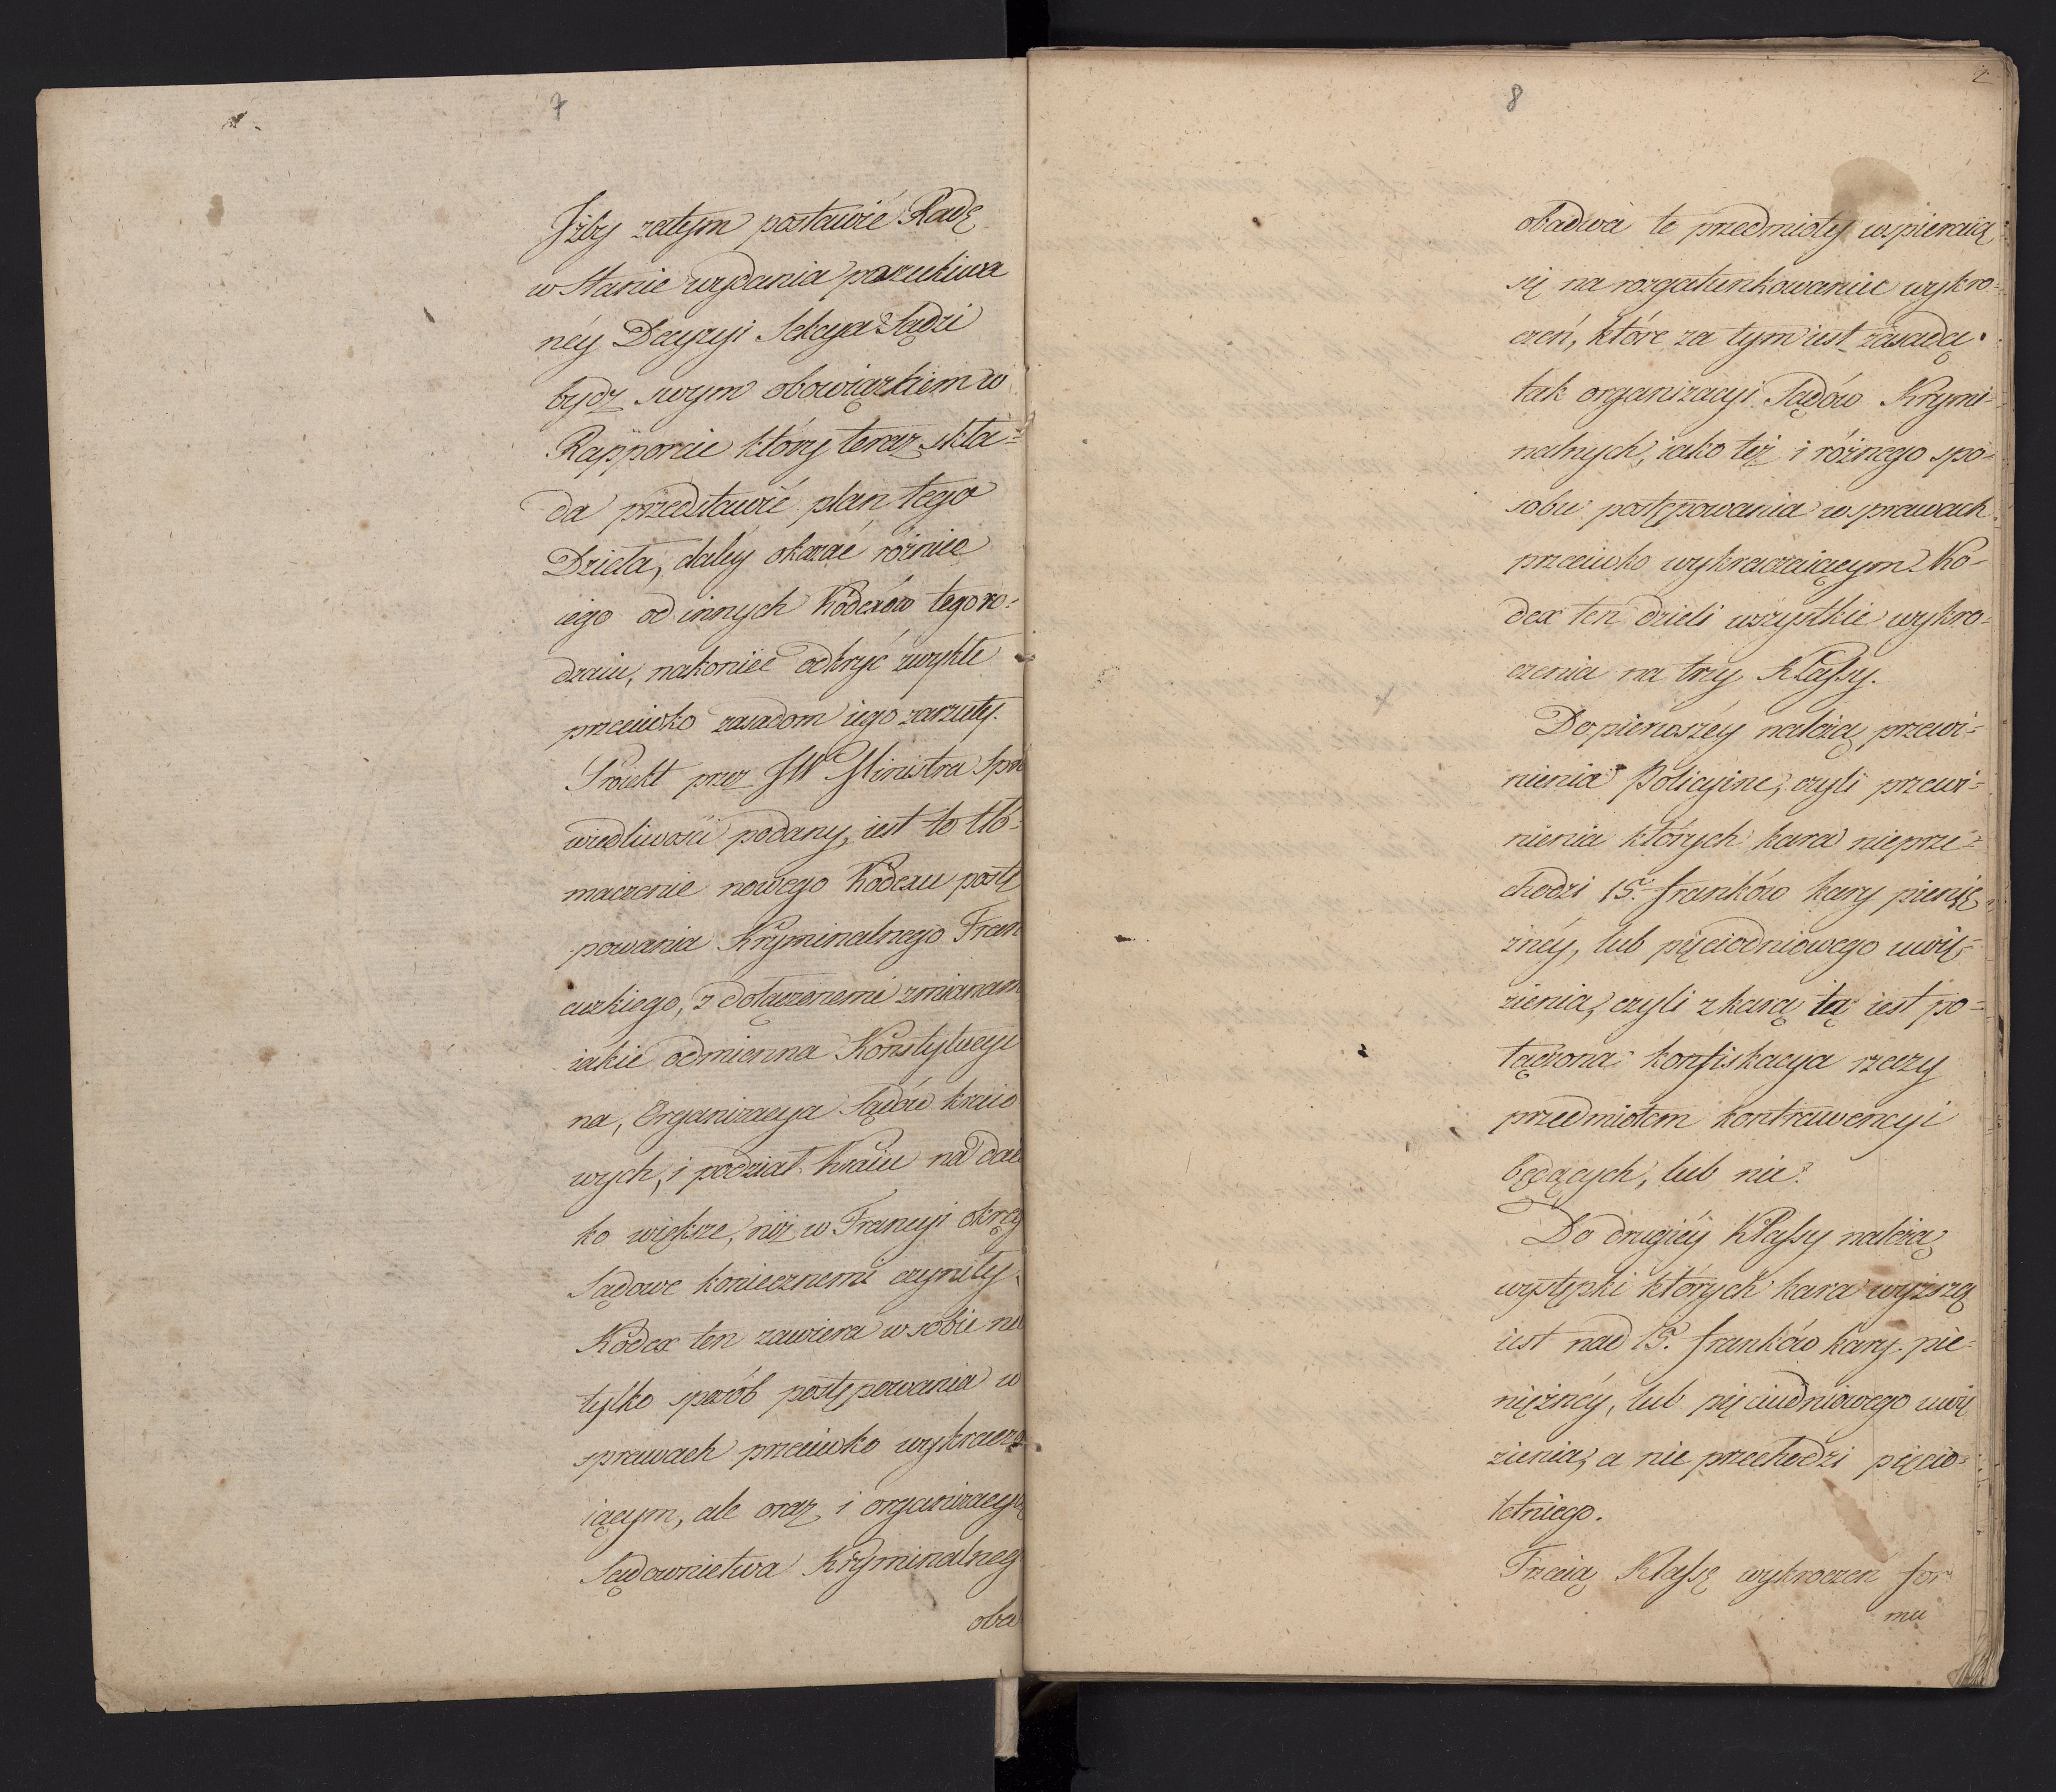 7
Jżby zatym postawić Radę
w Stanie wydania poszukiwa
néy Decyzyi Sekcya Sądzi
bydz swym obowiązkiem w
Rapporcie który teraz skła-
da przedstawić plan tego
Dzieła, daléy okazać różnice
iego od innych Kodexów tego ro-
dzaiu, nakoniec odkryć zwykłe
przeciwko zasadom iego zarzuty.
Proiekt przez JW Ministra Spra
wiedliwości podany, iest to tłó-
maczenie nowego Kodexu postę
powania Kryminalnego Fran
cuzkiego, z dołączonemi zmianam
iakie odmienna Konstytucyi
na, Organizacya Sądów kraio
wych, i podział Kraiu na dale
ko większe, niż w Francyi okręg
Sądowe koniecznemi czyniły.
Kodex ten zawiera w sobie nie
tylko sposób postępowania w
sprawach przeciwko wykracza
iącym, ale oraz i organizacyą
Sądownictwa Kryminalneg
oba
8
2
obadwa te przedmioty wspieraią
się na rozgatunkowaniu wykro-
czeń, które za tym iest zasadą
tak organizacyi Sądów Krymi-
nalnych, iako też i różnego spo-
sobu postępowania w sprawach
przeciwko wykraczaiącym Ko-
dex ten dzieli wszystkie wykro-
czenia na trzy Klassy.
Do pierwszéy należą przewi-
nienia Policyine, czyli przewi-
nienia których kara nieprze-
chodzi 15. franków kary pienię
znéy, lub pięciodniowego uwię-
zienia, czyli z karą tą iest po-
łączona konfiskacya rzeczy
przedmiotem kontrawencyi
będących, lub nie.
Do drugiéy Klassy należą
występki których kara wyższą
iest nad 15. franków kary pie-
niężnéy, lub pięciudniowego uwię
zienia, a nie przechodzi pięcio-
letniego.
Trzecią Klassę wykroczeń for
mu